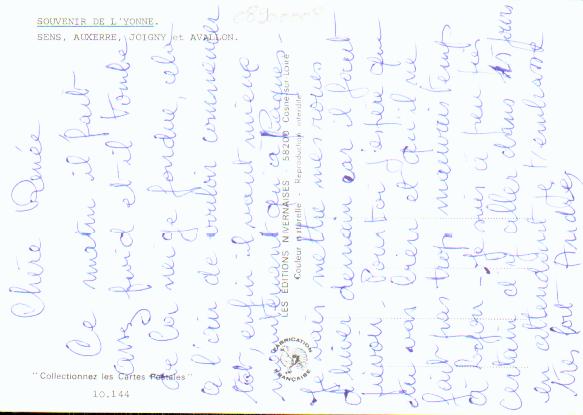 SOUVENIR DE L'YONNE.
SENS, AUXERRE, JOIGNY et AVALLON.
LES ÉDITIONS NIVERNAISES - 58200 Cosne-sur-Loire
Couleur naturelle - Reproduction interdite
FABRICATION FRANÇAISE
"Collectionnez les Cartes Postales"
10.144
Chère Renée
Ce matin il fait
assez froid et il tombe
de la neige fondue, cela
a l'air de vouloir commencer
tôt enfin il vaut mieux
maintenant qu'à Pâques.
Je vais mettre mes roues
d'hiver demain car il faut
Pour toi j'espère que
tu vas bien et qu'il ne
fait pas trop mauvais temps
à Dijon. Je suis à peu près
certain d'y aller dans 15 jours
en attendant je t'embrasse
très fort. André